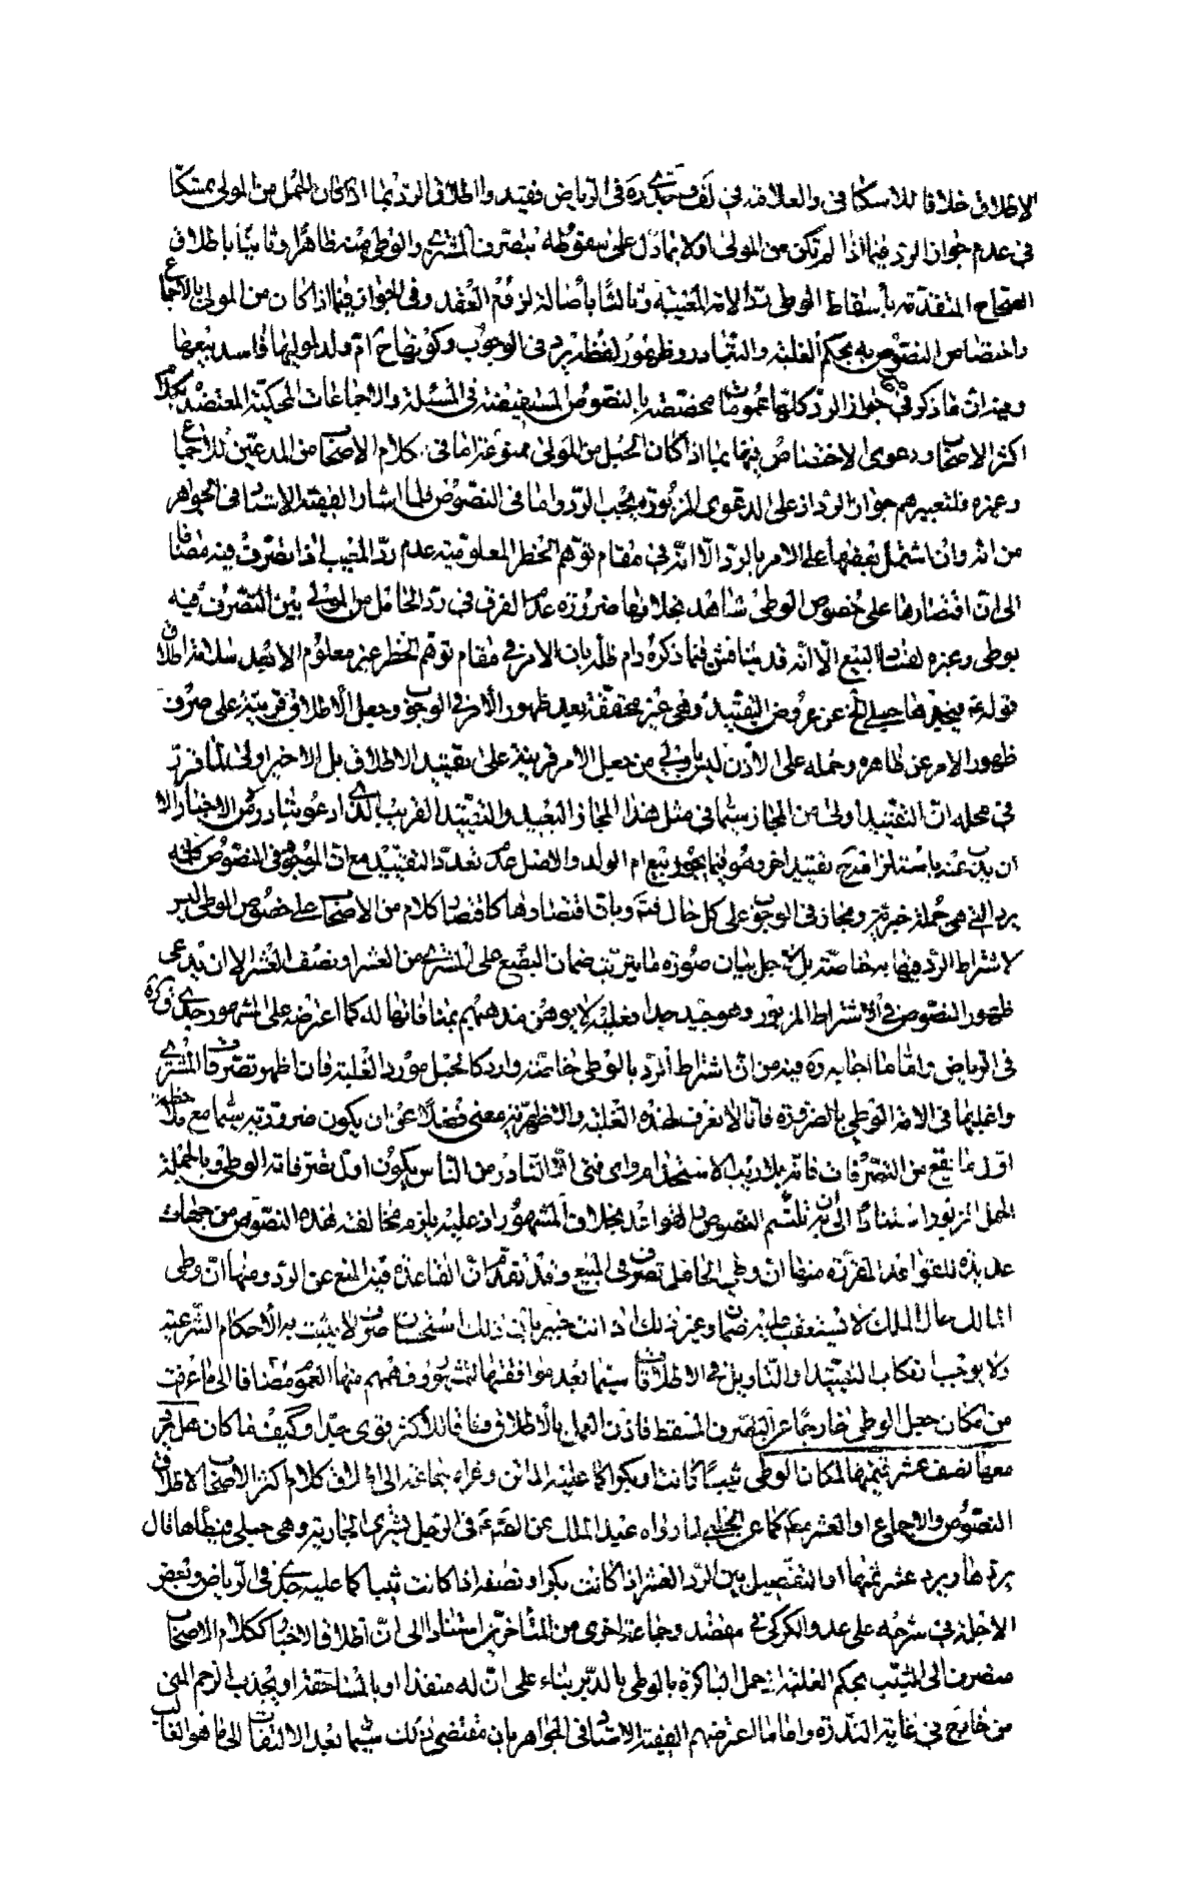 الاطلاق خلافا للاسكافى والعلامة فى لف وجدى ره فى الرياض فقيد والطلاق الرد بما اذا كان الحمل من المولى متمسكا
فى عدم جواز الرد فيما اذا لم تكن من المولى اولا بما دل على سقوطه بتصرف المشترى والوطى منه ظاهرا وثانيا باطلاق
الصحاح المتقدمة باسقاط الوطى رد الامة المعيبة وثالثا باصالة لزوم العقد وفى الجواز فيما اذا كان من المولى بالاجماع
واختصاص النصوص به بحكم الغلبة والتبادر وظهور لفظة يرد فى الوجوب وكونها ح ام ولد لمولاها فاسد بيعها
وفيه ان ما ذكر فى جواز الرد كلها عمومات مخصصة بالنصوص المستفيضة فى المسئلة والاجماعات المحكية المعتضدة بكلام
اكثر الاصحاب ودعوى الاختصاص فيهما بما اذا كان الحبل من المولى ممنوعة اما فى كلام الاصحاب من المدعين للاجماع
وغيره فلتعبيرهم جواز الرد اذ على الدعوى المزبورة يجب الرد واما فى النصوص فلما اشار الفقيه الاستاد فى الجواهر
من انه وان اشتمل بعضها على الامر بالرد الا انه فى مقام توهم الحظر المعلومية عدم رد المعيب اذا تصرف فيه مضافا
الى ان اقتصارها على خصوص الوطى شاهد بخلافها ضرورة عدم الفرق فى رد الحامل من المولى بين التصرف فيه
بوطى وغيره لفساد البيع الا انه قد يناقش فيما ذكره دام ظله بان الامر فى مقام توهم الحظر غير معلوم الا بعد سلامة اطلاق
قوله فيجدها حبلى الخ عن عروض التقييد وهى غير محققة بعد ظهور الامر فى الوجوب وجعل الاطلاق قرينة على صرف
ظهور الامر عن ظاهره وحمله على الاذن ليس باولى من جعل الامر قرينة على تقييد الاطلاق بل الاخير اولى لما قرر
فى محله ان التقييد اولى من المجاز سيما فى مثل هذا المجاز البعيد والتقييد القريب الذى ادعوا تبادره من الاخبار الا
ان يذب عنه باستلزامه ح تقييد اخر وهو فيما يجوز بيع ام الولد والاصل عدم تعدد التقييد مع ان الموجود فى النصوص كلمة
يرد التى هى جملة خبرية ومجاز فى الوجوب على كل حال فت وبان اقتصارها كاقتصار كلام من الاصحاب على خصوص الوطى ليس
لاشتراط الرد فيها به خاصة بل لاجل بيان صورة ما يترتب ضمان البضع على المشترى من العشر او نصف العشر الا ان يدعى
ظهور النصوص فى الاشتراط المزبور وهو جيد جدا وعليه لا يوهن مذهبهم بمنافاتها له كما اعترضه على المشهور جدى قدس سره
فى الرياض واما ما اجاب ره فيه من ان اشتراط الرد بالوطى خاصة وارد كالحبل مورد الغلبة فان اظهر تصرفات المشترى
واغلبها فى الامة الوطى بالضرورة فانا لا نعرف لهذه الغلبة والاظهرية معنى فضلا عن ان يكون ضرورية سيما مع ملاحظة
اول ما يقع من التصرفات فانه بلا ريب الاستخدام واى فتى الا النادر من الناس يكون اول تصرفاته الوطى وبالجملة
الحمل المزبور استنادا الى انه به تلتئم النصوص بالقواعد بخلاف المشهور اذ عليه يلزم مخالفة هذه النصوص من جهات
عديدة للقواعد المقررة منها ان وطى الحامل تصرف فى المبيع وقد تقدم ان القاعدة فيه المنع عن الرد ومنها ان وطى
المالك حال الملك لا يستعقب عليه ضمان وغير ذلك اذ انت خبير بان ذلك استحسان صرف لا يثبت به الاحكام الشرعية
ولا يوجب ارتكاب التقييد والتاويل فى الاطلاقات سيما بعد موافقتها للمشهور وفهمهم منها العموم مضافا الى ما عرفت
من امكان جعل الوطى خارجا عن التصرف المسقط فاذن العمل بالاطلاق وفاقا للاكثر قوى جدا وكيف ما كان هل يرد
معها نصف عشر قيمتها لمكان الوطى ثيبا كانت او بكرا كما عليه الماتن وغراه جماعة الى اطلاق كلام اكثر الاصحاب لاطلاق
النصوص والاجماع او العشر مطلقا كما عن الحلبى لما رواه عبد الملك عن الصادق ع فى الرجل يشترى الجارية وهى حبلى فيطأها قال
يردها ويرد عشر ثمنها او التفصيل بين الرد العشر اذا كانت بكرا ونصفه اذا كانت ثيبا كما عليه جدى فى الرياض وبعض
الاجلة فى شرحه على عد والكركى فى مقصد وجماعة اخرى من المتأخرين استنادا الى ان اطلاق الاخبار ككلام الاصحاب
منصرف الى الثيب بحكم الغلبة اذ حمل الباكرة بالوطى بالدبر بناء على ان له منفذا او بالمساحقة او بجذب الرحم المنى
من خارج فى غاية الندرة واما ما اعترضهم الفقيه الاستاد فى الجواهر بان مقتضى ذلك سيما بعد الالتفات الى ما هو الغالب